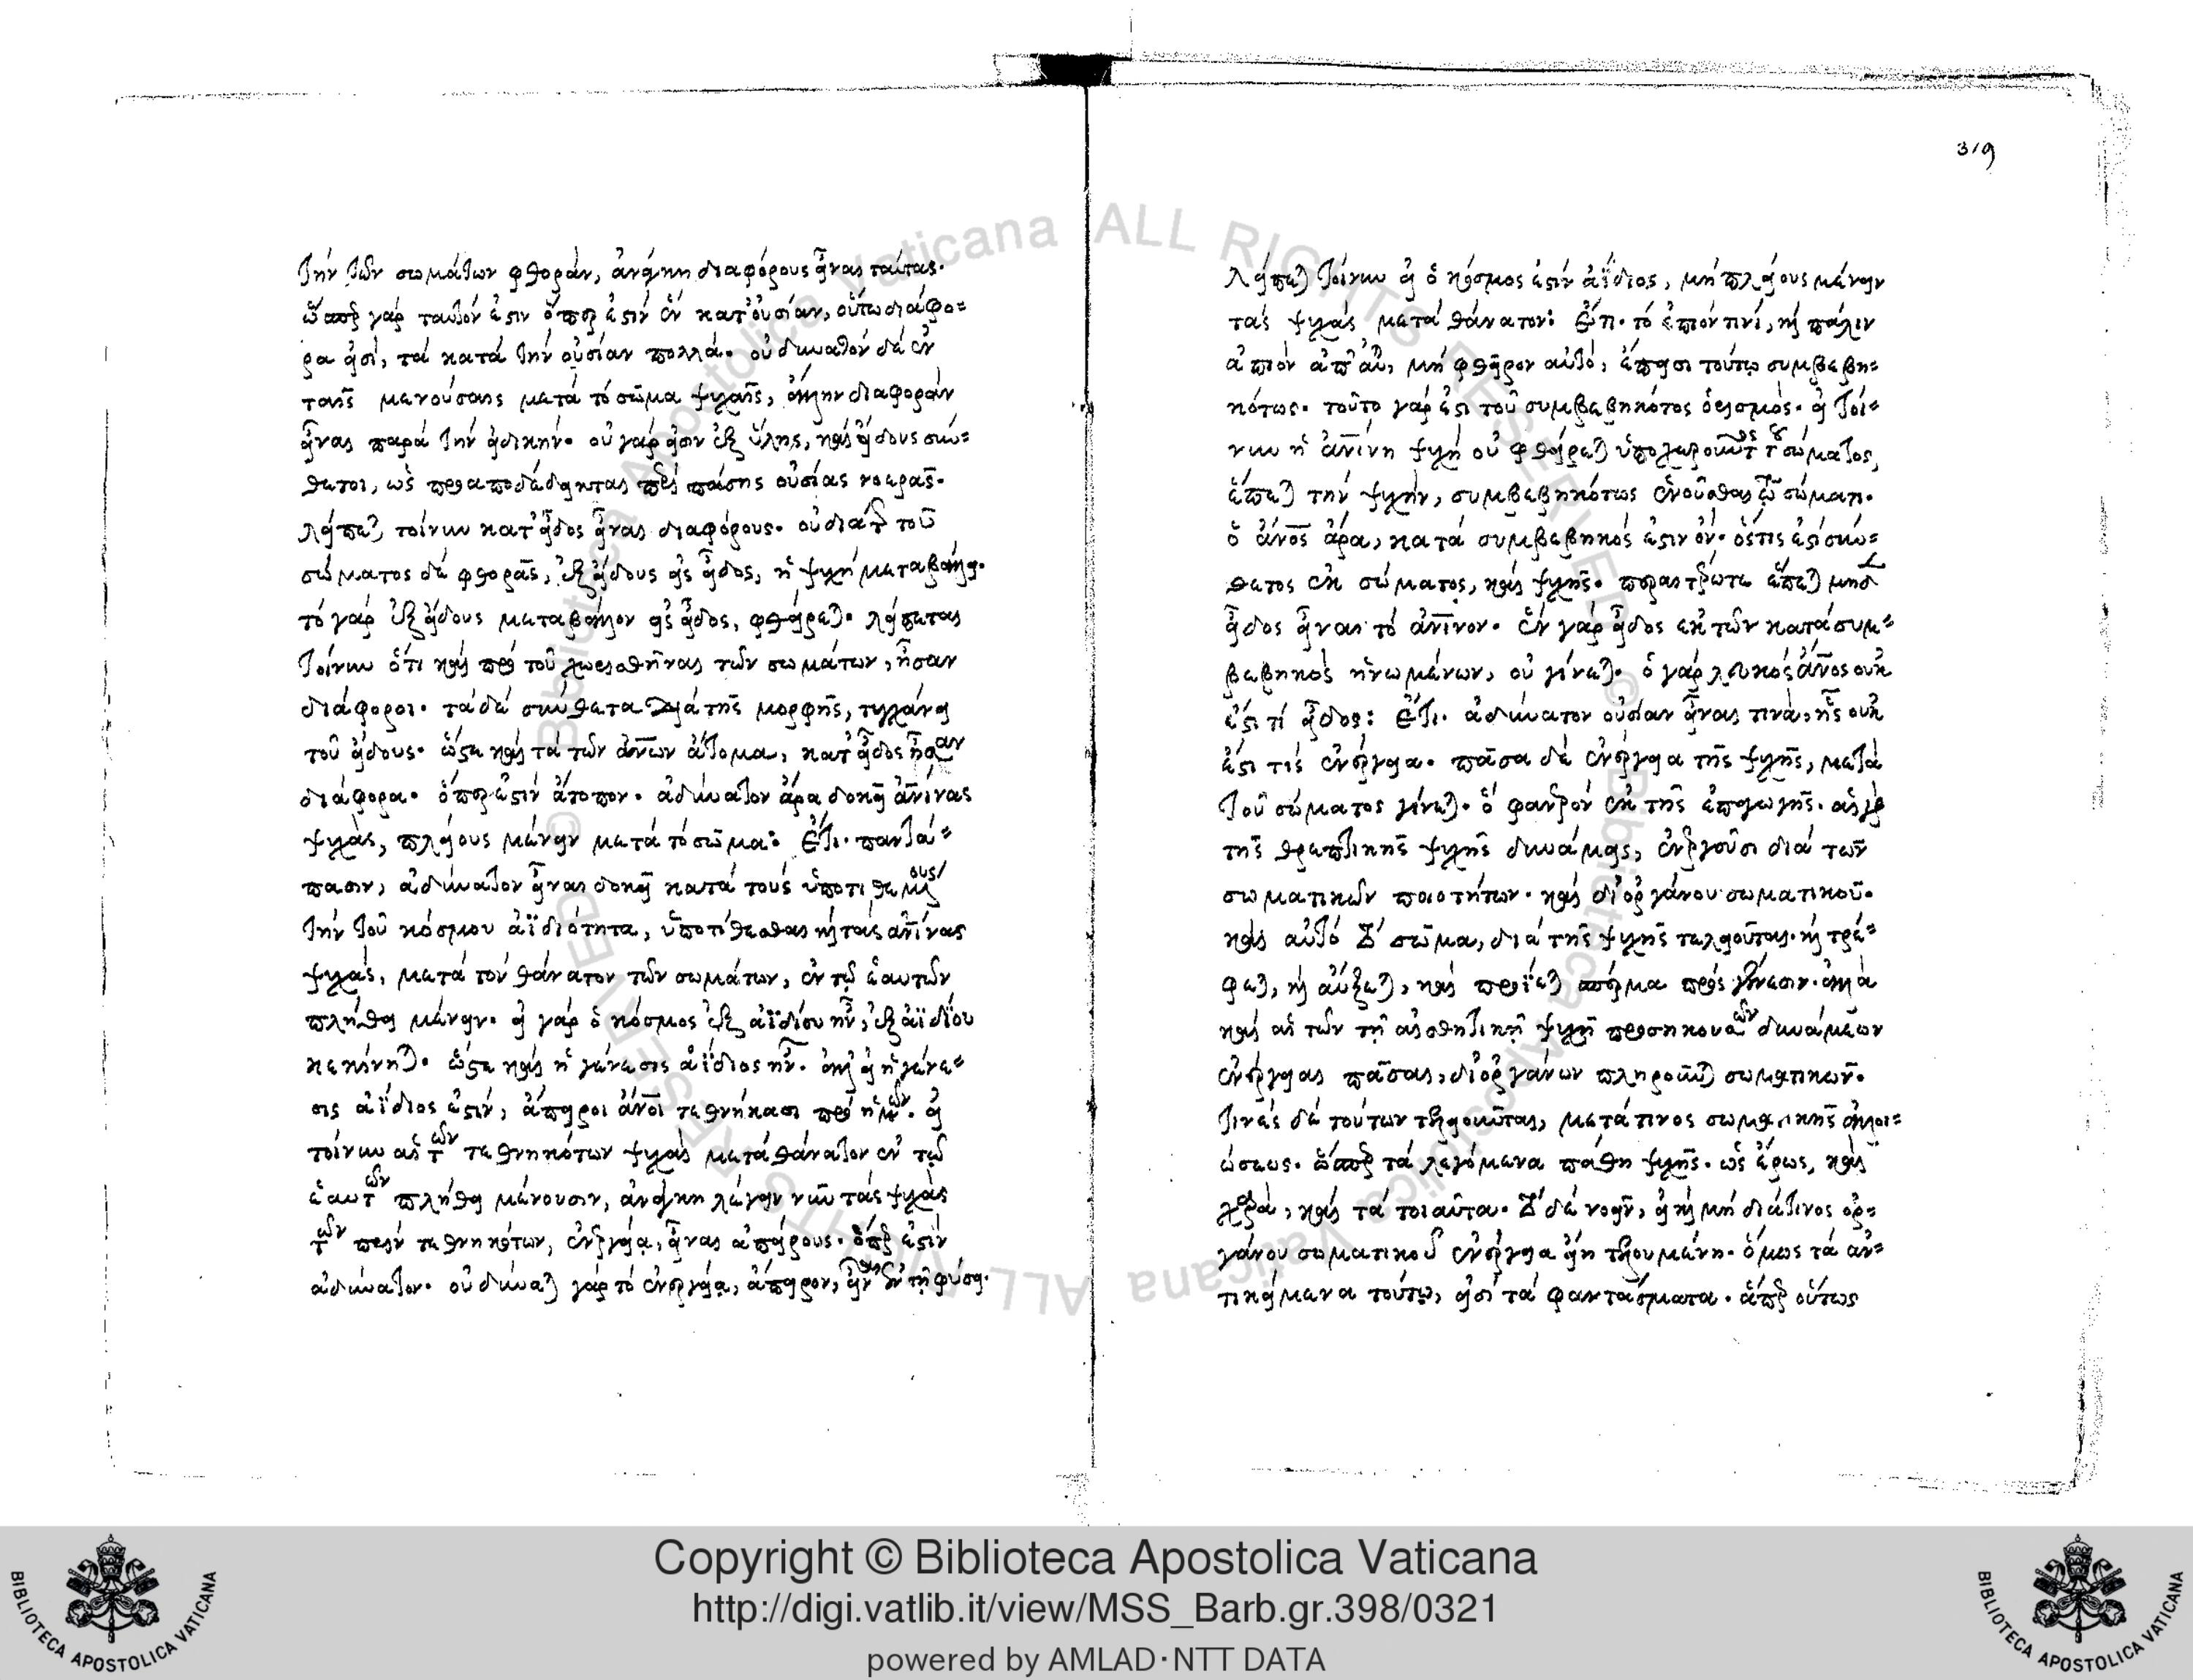 τὴν τῶν σωμάτων φθορὰν, ἀνάγκη διαφόρους εἶναι ταύτας.
ὥσπερ γὰρ ταυτὸν ἐστιν ὅπερ ἐστὶν ἓν κατ' οὐσίαν, οὕτω διάφο=
ρα εἰσὶ, τὰ κατὰ τὴν οὐσίαν πολλά. οὐ δυνατὸν δὲ ἐν
ταῖς μενούσαις μετὰ τὸ σῶμα ψυχαῖς, ἄλλην διαφορὰν
εἶναι παρὰ τὴν εἰδικήν. οὐ γάρ εἰσιν ἐξ ὕλης, καὶ εἴδους σύν=
θετοι, ὡς προαποδέδεικται περὶ πάσης οὐσίας νοερᾶς.
λείπεται τοίνυν κατ' εἶδος εἶναι διαφόρους. οὐ διὰ τοῦ
σώματος δὲ φθορᾶς, ἐξ εἴδους εἰς εἶδος, ἡ ψυχὴ μεταβάλλει.
τὸ γὰρ ἐξ εἴδους μεταβάλλον εἰς εἶδος, φθείρεται. λείπεται
τοίνυν ὅτι καὶ πρὸ τοῦ χωρισθῆναι τῶν σωμάτων, ἦσαν
διάφοροι. τὰ δὲ σύνθετα διὰ τῆς μορφῆς, τυγχάνει
τοῦ εἴδους. ὥστε καὶ τὰ τῶν ἀνων ἄτομα, κατ' εἶδος ἦσαν
διάφορα. ὅπερ ἐστὶν ἄτοπον. ἀδύνατον ἄρα δοκεῖ ἀνίνας
ψυχὰς, πλείους μένειν μετὰ τὸ σῶμα: Ἔτι. παντά=
πασιν, ἀδύνατον εἶναι δοκεῖ κατὰ τοὺς ὑποτιθεμένους
τὴν τοῦ κόσμου ἀϊδιότητα, ὑποτίθεσθαι καὶ τὰς ἀνίνας
ψυχὰς, μετὰ τὸν θάνατον τῶν σωμάτων, ἐν τῷ ἑαυτῶν
πλήθει μένειν. εἰ γὰρ ὁ κόσμος ἐξ ἀϊδίου ἦν, ἐξ ἀϊδίου
κεκίνηται. ὥστε καὶ ἡ γένεσις ἀΐδιος ἦν. ἀλλ' εἰ ἡ γένε=
σις ἀΐδιος ἐστιν, ἄπειροι ἄνοι τεθνήκασι πρὸ ἡμῶν. εἰ
τοίνυν αἱ τῶν τεθνηκότων ψυχαὶ μετὰ θάνατον ἐν τῷ
ἑαυτῶν πλήθει μένουσιν, ἀνάγκη λέγειν νῦν τὰς ψυχὰς
τῶν πρὶν τεθνηκότων, ἐνεργείᾳ, εἶναι ἀπείρους. ὅπερ ἐστὶν
ἀδύνατον. οὐ δύναται γὰρ τὸ ἐνεργείᾳ, ἄπειρον, εἶναι ἐν τῇ φύσει.
319
λείπεται τοίνυν εἰ ὁ κόσμος ἐστὶν ἀΐδιος, μὴ πλείους μένειν
τὰς ψυχὰς μετὰ θάνατον: Ἔτι. τὸ ἐπιόν τινι, καὶ πάλιν
ἀπιὸν ἀπ' αὐτοῦ, μὴ φθεῖρον αὐτὸ, ἔπεισι τούτῳ συμβεβη=
κότως. τοῦτο γὰρ ἐστι τοῦ συμβεβηκότος ὁρισμός. εἰ τοί=
νυν ἡ ἀνίνη ψυχὴ οὐ φθείρεται ὑποχωροῦντος τοῦ σώματος,
ἕπεται τὴν ψυχὴν, συμβεβηκότως ἑνοῦσθαι τῷ σώματι.
ὁ ἄνος ἄρα, κατὰ συμβεβηκός ἐστιν ὄν. ὅστις ἐστὶ σύν=
θετος ἐκ σώματος, καὶ ψυχῆς. περαιτέρω τε ἕπεται μηδὲν
εἶδος εἶναι τὸ ἀνινον. ἓν γὰρ εἶδος ἐκ τῶν κατὰ συμ=
βεβηκὸς ἡνωμένων, οὐ γίνεται. ὁ γὰρ λευκὸς ἄνος οὐκ
ἔστι τί εἶδος: Ἔτι. ἀδύνατον οὐσίαν εἶναι τινὰ, ἧς οὐκ
ἔστι τις ἐνέργεια. πᾶσα δὲ ἐνέργεια τῆς ψυχῆς, μετὰ
τοῦ σώματος γίνεται. ὃ φανερὸν ἐκ τῆς ἐπαγωγῆς. αἱ γὰρ
τῆς θρεπτικῆς ψυχῆς δυνάμεις, ἐνεργοῦσι διὰ τῶν
σωματικῶν ποιοτήτων. καὶ δι' ὀργάνου σωματικοῦ.
καὶ αὐτὸ τὸ σῶμα, διὰ τῆς ψυχῆς τελειοῦται. καὶ τρέ=
φεται, καὶ αὔξεται, καὶ προΐεται σπέρμα πρὸς γένεσιν. ἀλλὰ
καὶ αἱ τῶν τῇ αἰσθητικῇ ψυχῇ προσηκουσῶν δυνάμεων
ἐνέργειαι πᾶσαι, δι' ὀργάνων πληροῦνται σωματικῶν.
τινὲς δὲ τούτων τελοῦνται, μετά τινος σωματικῆς ἀλλοι=
ώσεως. ὥσπερ τὰ λεγόμενα πάθη ψυχῆς. ὡς ἔρως, καὶ
χαρὰ, καὶ τὰ τοιαῦτα. τὸ δὲ νοεῖν, εἰ καὶ μὴ διά τινος ὀρ=
γάνου σωματικοῦ ἐνέργεια εἴη τελουμένη. ὅμως τὰ ἀν=
τικείμενα τούτῳ, εἰσὶ τὰ φαντάσματα. ἅπερ οὕτως
Copyright © Biblioteca Apostolica Vaticana
http://digi.vatlib.it/view/MSS_Barb.gr.398/0321
powered by AMLAD·NTT DATA
BIBLIOTECA APOSTOLICA VATICANA
BIBLIOTECA APOSTOLICA VATICANA